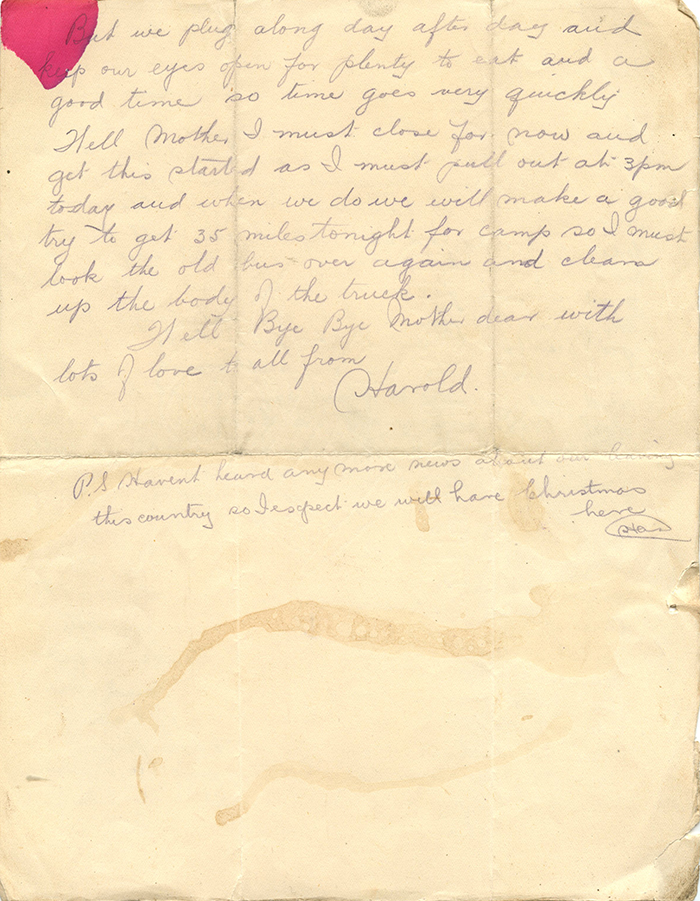 But we plug along day after day and
keep our eyes open for plenty to eat and a
good time so time goes very quickly
Well Mother I must close for now and
get this started as I must pull out at 3pm
today and when we do we will make a good
try to get 35 miles tonight for camp so I must
look the old bus over again and clean
up the body of the truck.
Well Bye Bye Mother dear with
lots of love to all from
Harold.
P.S Havent heard any more news about our leaving
this country so I expect we will have Christmas
here
Har